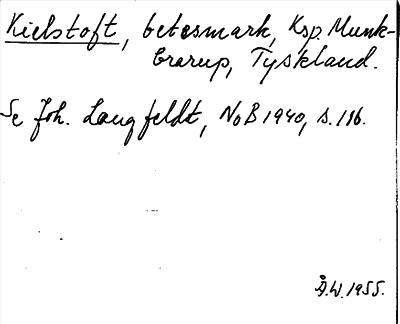 Kielstoft, betesmark, Ksp. Munk-
brarup, Tyskland.
Se Joh. Langfeldt, NoB 1940, s. 116.
Å.W. 1955.